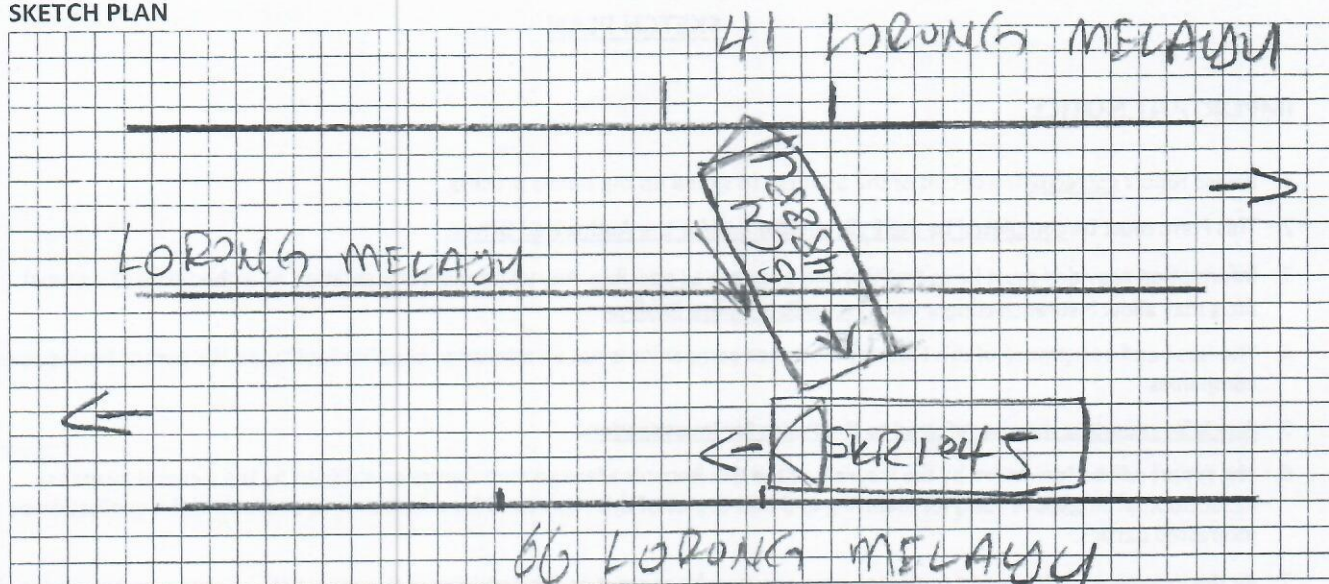 SKETCH PLAN
41 LORONG MELAYU
LORONG MELAYU
SKR1045
66 LORONG MELAYU